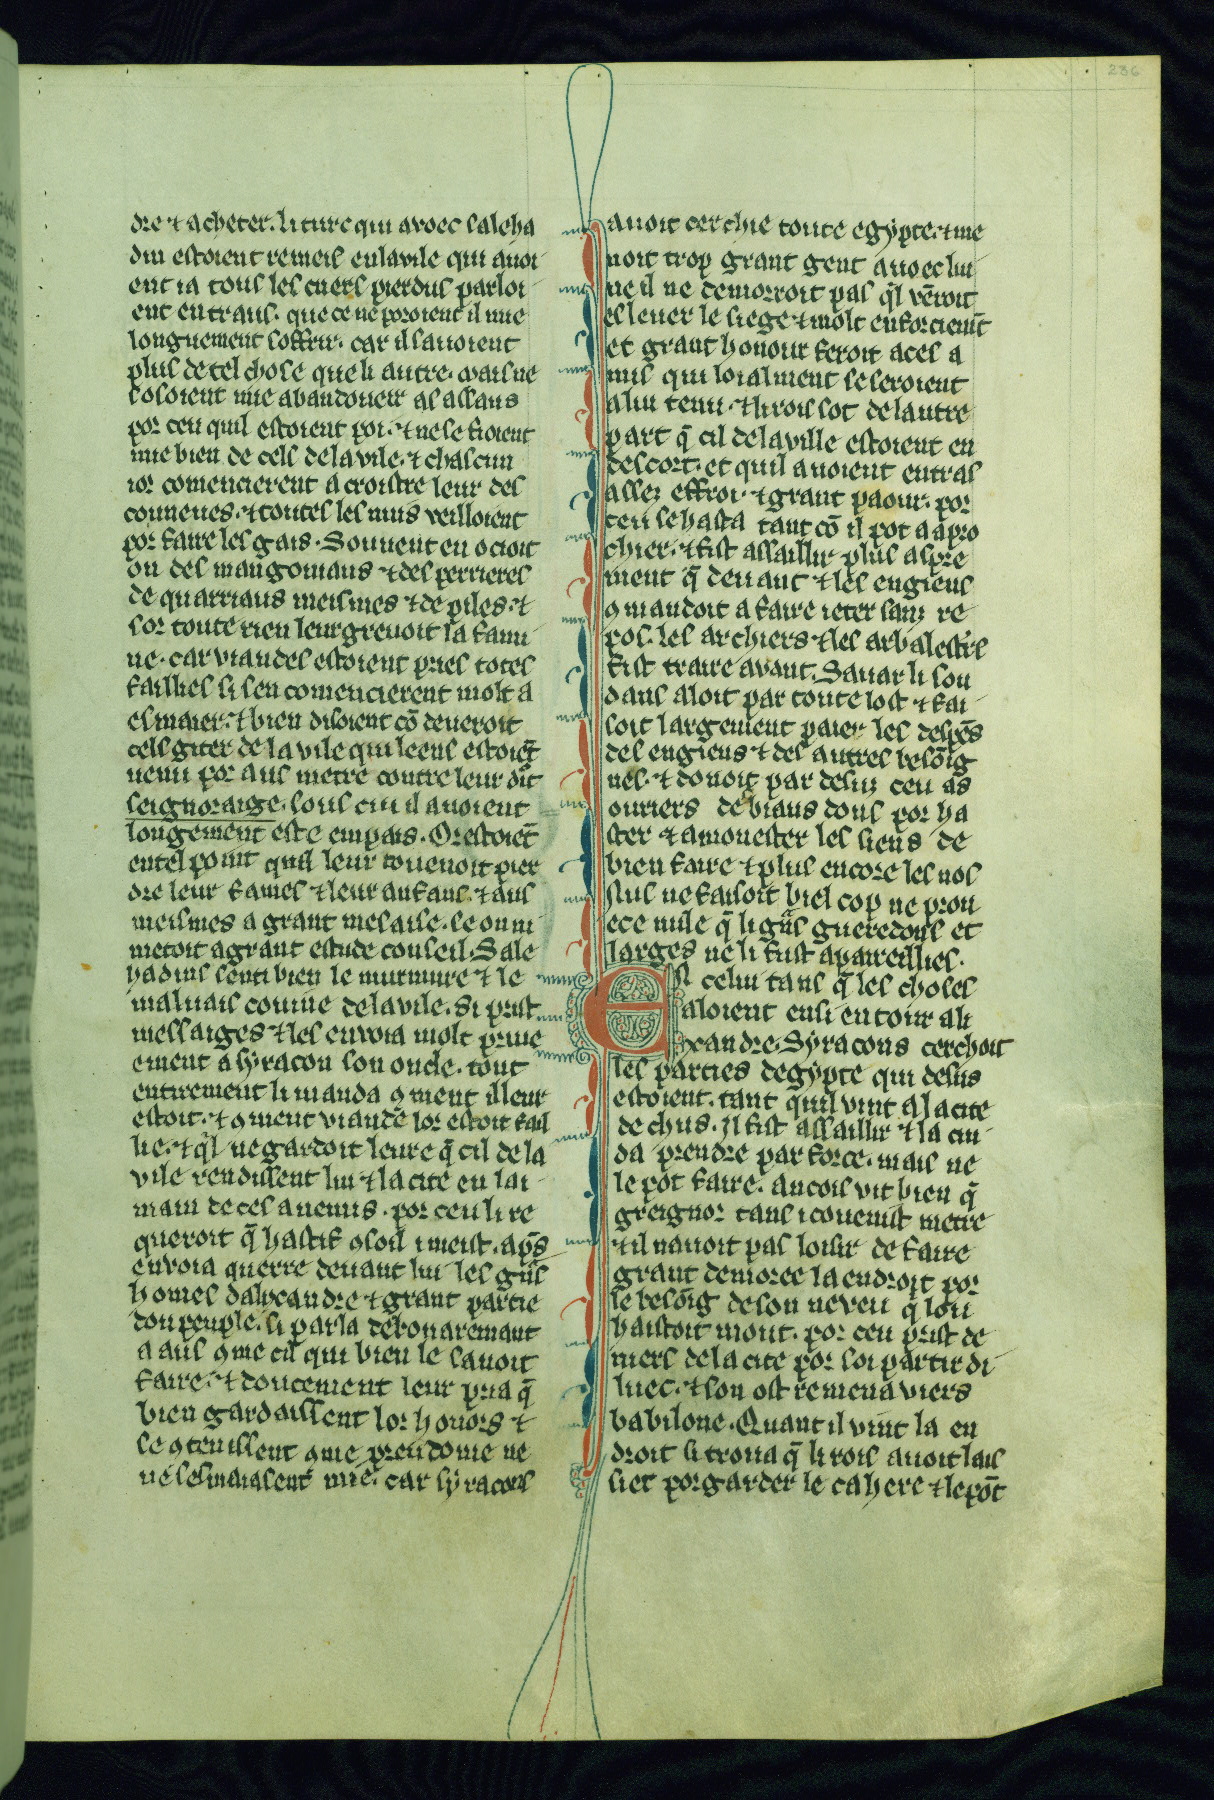 dre ⁊ acheter. li turc qui avoec saleha
din estoient remeis en la vile qui avoi
ent ia tous les cuers pierdus parloi
ent entraus. que ce ne poroient il mie
longuement soffrir. car il savoient
plus de tel chose que li autre. mais ne
sosoient mie abandoneir as assaus
por ceu quil estoient poi. ⁊ ne se fioient
mie bien de cels de la vile. ⁊ chascun
ior comencierent a croistre leur des
conneues. ⁊ toutes les nuis veilloient
por faire les gais. Souvent en ocioit
on des mangoniaus ⁊ des perrieres
de quarriaus meismes ⁊ de piles. ⁊
sor toute rien leur grevoit la fami
ne. car viandes estoient pries totes
faillies si sen comencierent molt a
esmaier. ⁊ bien disoient cō deveroit
cels giter de la vile qui leens estoiēt
venu por aus metre contre leur
seignoraige. sous cui il avoient
longement este en pais. Or estoiēt
en tel point quil leur covenoit pier
dre leur fames ⁊ leur anfans. ⁊ aus
meismes a grant mesaise. se on ni
metoit a grant estude conseil. Sale
hadins senti bien le murmure ⁊ le
malvais covine de la vile. Si prist
messaiges ⁊ les envoia molt prive
ement a syracon son oncle. tout
entirement li manda ꝯment il leur
estoit. ⁊ ꝯment viandē lor estoit fail
lie. ⁊ q̄l ne gardoit leure q̄ cil de la
vile rendissent lui ⁊ la cite en lai
main de ces anemis. por ceu li re
queroit q̄ hastif ꝯsoil i meist. ap̄s
envoia querre devant lui les gn̄s
homes dalixandre ⁊ grant partie
dou peuple. si parla debonaremant
a aus ꝯme cil qui bien le savoit
faire. ⁊ doucement leur pria q̄
bien gardaissent lor honors ⁊
se ꝯtenissent ꝯme preudome ne
ne sesmaiasent mie. car syracons
avoit cerchie toute egypte. ⁊ me
noit trop grant gent avoec lui
ne il ne demorroit pas q̄l vēroit
es lever le siege ⁊ molt enforciemt̄
et grant honour feroit a ces a
mis qui loialment se seroient
a lui tenu. ⁊ li rois sot de lautre
part q̄ cil de la ville estoient en
descort. et quil avoient entras
assez effroi. ⁊ grant paour. por
ceu se hasta tant cō il pot a apro
chier. ⁊ fist assaillir plus aspre
ment q̄ devant ⁊ les engiens
ꝯmandoit a faire ieter sanz re
pos. les archiers ⁊ les arbalestr̄s
fist traire avant. Savar li sou
dans aloit par toute lost ⁊ fai
soit largement paier les despēs
des engiens ⁊ des autres besōig
nes. ⁊ donoit par desuz ceu as
ouriers de biaus dons por ha
ster ⁊ amonester les siens de
bien faire ⁊ plus encore les nos
Nus ne faisoit biel cop ne prou
ece nule q̄ li gn̄s gueredons et
larges ne li fust apareillies.
EN celui tans q̄ les choses
aloient ensi entour ali
xandre. Syracons cerchoit
les parties degypte qui desus
estoient. tant quil vint a la cite
de chus. Il fist assaillir ⁊ la cui
da prendre par force. mais ne
le pot faire. ancois vit bien q̄
greignor tans i covenist metre
⁊ il navoit pas loisir de faire
grant demoree la endroit por
le besōig de son neveu q̄ lou
haistoit mout. por ceu prist de
niers de la cite por soi partir di
luec. ⁊ son ost remena viers
babilone. Quant il vint la en
droit si trova q̄ li rois avoit lais
siet por garder le cahere ⁊ le pōt